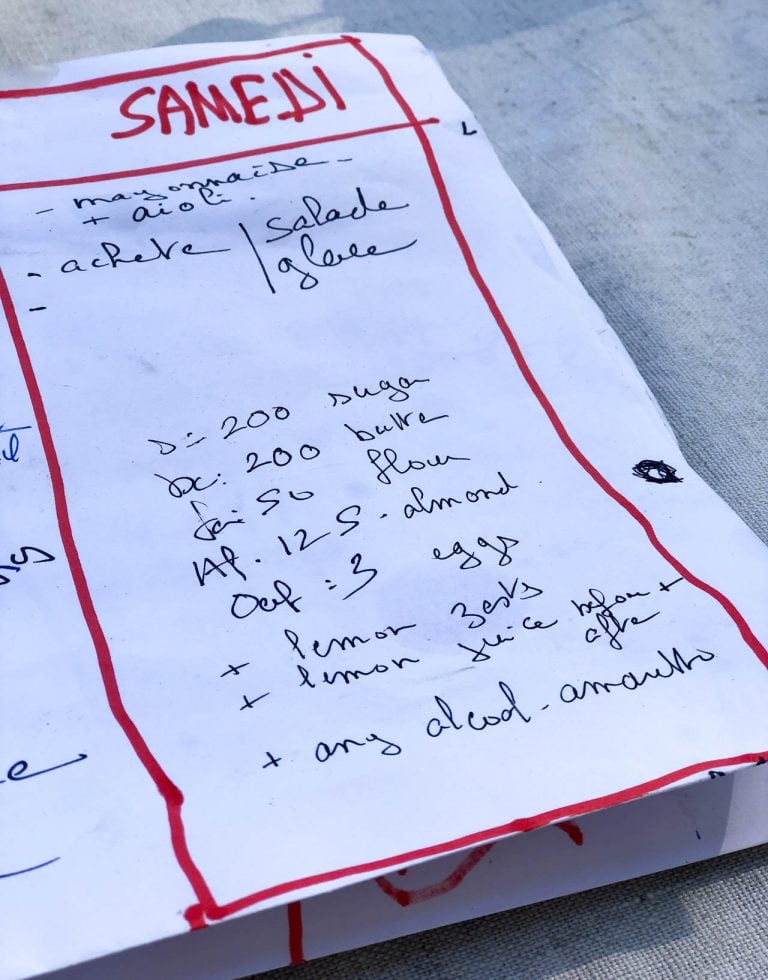 SAMEDI
- mayonnaise -
+ aioli.
- achete / salade
glace
-
s: 200 sugar
200 butter
fa: 50 flour
125 - almond
Oeuf : 3 eggs
+ lemon zests
+ lemon juice before + after
+ any alcool - amaretto